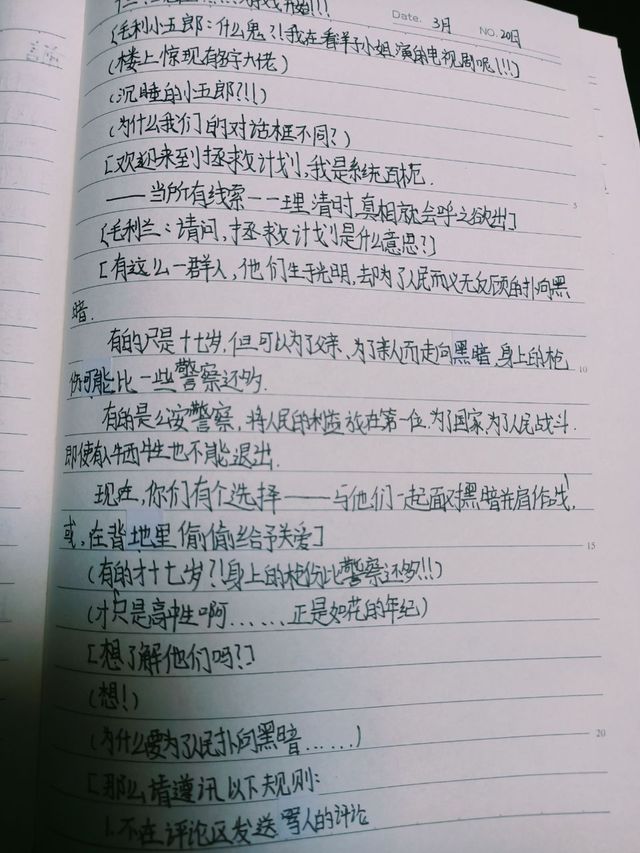 Date. 3月 NO. 20日
(毛利小五郎:什么鬼?!我在看洋子小姐演的电视剧呢!!!]
(楼上惊现名字大佬)
(沉睡的小五郎?!!)
(为什么我们的对话框不同?)
[欢迎来到拯救计划,我是系统百栀.
——当所有线索一一理清时,真相就会呼之欲出]
(毛利兰:请问,拯救计划是什么意思?]
[有这么一群人,他们生于光明,却为了人民而义无反顾的扑向黑
暗.
有的只是十七岁,但可以为了父亲、为了亲人而走向黑暗,身上的枪
伤可能比一些警察还多.
有的是公安警察,将人民的利益放在第一位,为了国家,为了人民战斗.
即使有人牺牲也不能退出.
现在,你们有个选择——与他们一起面对黑暗并肩作战,
或,在背地里偷偷给予关爱]
(有的才十七岁?!身上的枪伤比警察还多!!)
(才只是高中生啊......正是如花的年纪)
[想了解他们吗?]
(想!)
(为什么要为了人民扑向黑暗......)
[那么请遵讯以下规则:
1.不在评论区发送骂人的评论
5
10
15
20